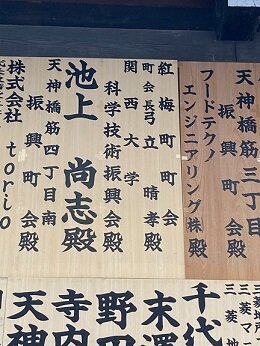 天神橋筋三丁目
振興町会殿
フードテクノ
エンジニアリング㈱殿
紅梅町町会
町会長弓立晴孝殿
関西大学
科学技術振興会殿
池上尚志殿
天神橋筋四丁目南
振興町会殿
株式会社torio
三菱地所
三菱マ
三菱地
千代
末澤
野田
寺内
天神